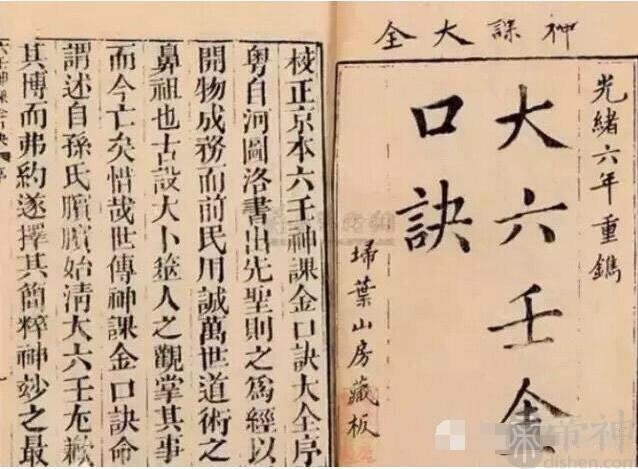 神課大全
光緒六年重鐫
大六壬金
口訣
掃葉山房藏板
校正京本六壬神課金口訣大全序
粵自河圖洛書出先聖則之爲經以
開物成務而前民用誠萬世道術之
鼻祖也古設大卜簭人之觀掌其事
而今亡矣惜哉世傳神課金口訣命
謂述自孫氏臏臏始清大六壬尨歉
其博而弗約遂擇其簡粹神妙之最
帝神
dishen.com